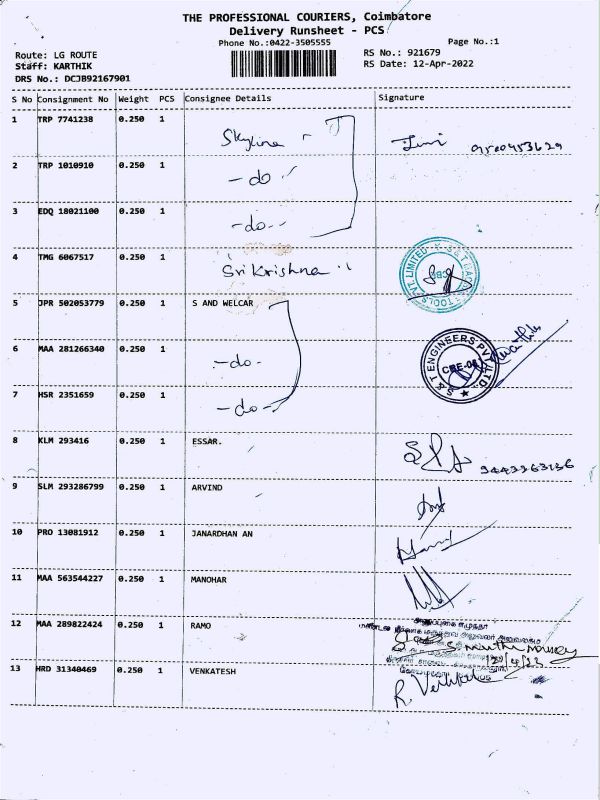 THE PROFESSIONAL COURIERS, Coimbatore
Delivery Runsheet - PCS
Phone No.:0422-3505555
Page No.:1
Route: LG ROUTE
RS No.: 921679
Staff: KARTHIK
RS Date: 12-Apr-2022
DRS No.: DCJ892167901
S No Consignment No Weight PCS Consignee Details Signature
1 TRP 7741238 0.250 1 Skyline
2 TRP 1010910 0.250 1 -do-
3 EDQ 18021100 0.250 1 -do-
4 TMG 6067517 0.250 1 Sri Krishna
5 JPR 502053779 0.250 1 S AND WELCAR
6 MAA 281266340 0.250 1 -do-
S & T ENGINEERS PVT. LTD.
7 HSR 2351659 0.250 1 -do-
8 KLM 293416 0.250 1 ESSAR.
9 SLM 293286799 0.250 1 ARVIND
10 PRO 13081912 0.250 1 JANARDHAN AN
11 MAA 563544227 0.250 1 MANOHAR
12 MAA 289822424 0.250 1 RAMO
13 HRD 31340469 0.250 1 VENKATESH